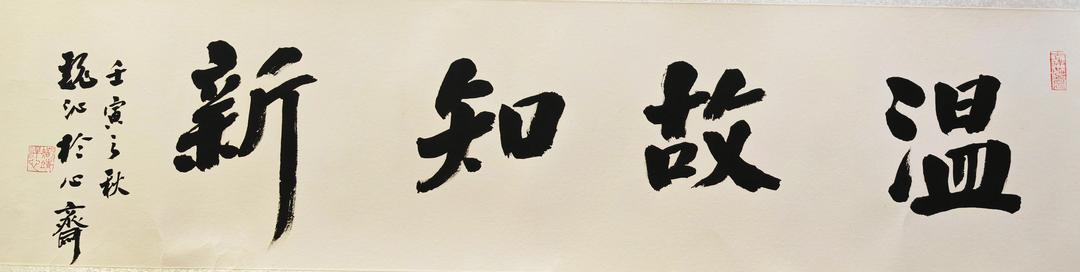 温故知新
壬寅之秋
魏沁於心齋